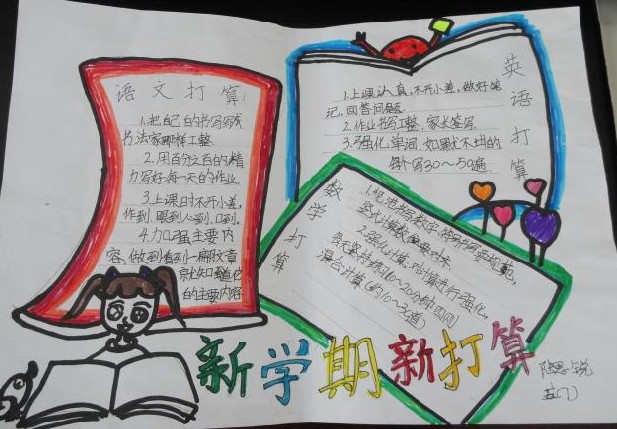 语文打算
1.把自己的书写写成
书法家哪样工整
2.用百分之百的精
力写好每一天的作业
3.上课时不开小差,
作到眼到心到口到.
4.加强主要内
容,做到看到一篇文章
就知道它
的主要内容
英语打算
1.上课认真,不开小差,做好笔
记,回答问题
2.作业书写工整,家长签写
3.强化单词,如果尤不对的
30～50遍
数学打算
2.强化计算,对计算进行强化,
每天坚持练10～20分钟四则
混合计算(约10～20道)
新学期新打算
五(7)